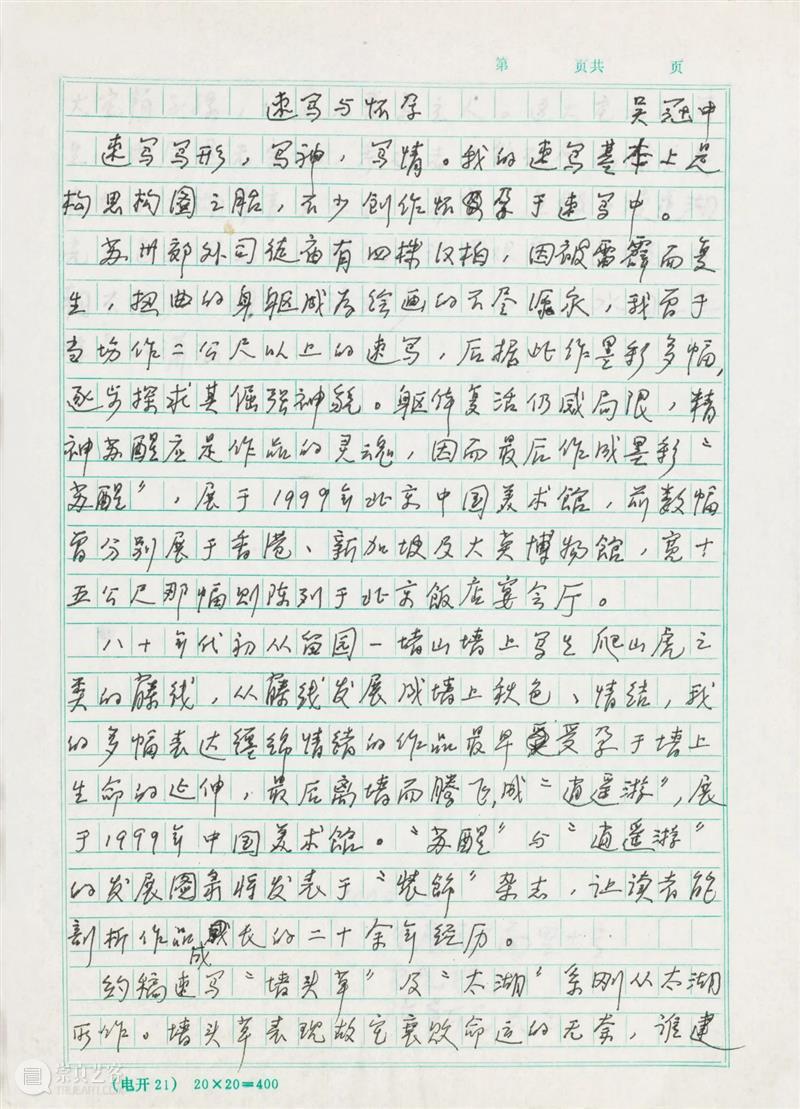 第 页共 页
速写与怀孕 吴冠中
速写写形，写神，写情。我的速写基本上是
构思构图之胎，不少创作怀孕于速写中。
苏州郊外司徒庙有四棵汉柏，因被雷霹而复
生，扭曲的身躯成为绘画的不尽源泉，我曾于
当场作二公尺以上的速写，后据此作墨彩多幅，
逐步探求其倔强神貌。躯体复活仍感局限，精
神苏醒应是作品的灵魂，因而最后作成墨彩“
苏醒”，展于1999年北京中国美术館，前数幅
曾分别展于香港、新加坡及大英博物館，宽十
五公尺那幅则陈列于北京飯店宴会厅。
八十年代初从留园一堵山墙上写生爬山虎之
类的藤线，从藤线发展成墙上秋色、情结，我
的多幅表达缠绵情绪的作品最早受孕于墙上
生命的延伸，最后离墙而腾飞，成“逍遥游”，展
于1999年中国美术館。“苏醒”与“逍遥游”
的发展图录将发表于“装饰”杂志，让读者能
剖析作品成长的二十余年经历。
约稿速写“墙头草”及“太湖”系刚从太湖
所作。墙头草表现故宅衰败命运的无奈，谁建
(电开21) 20×20=400
崇真艺客